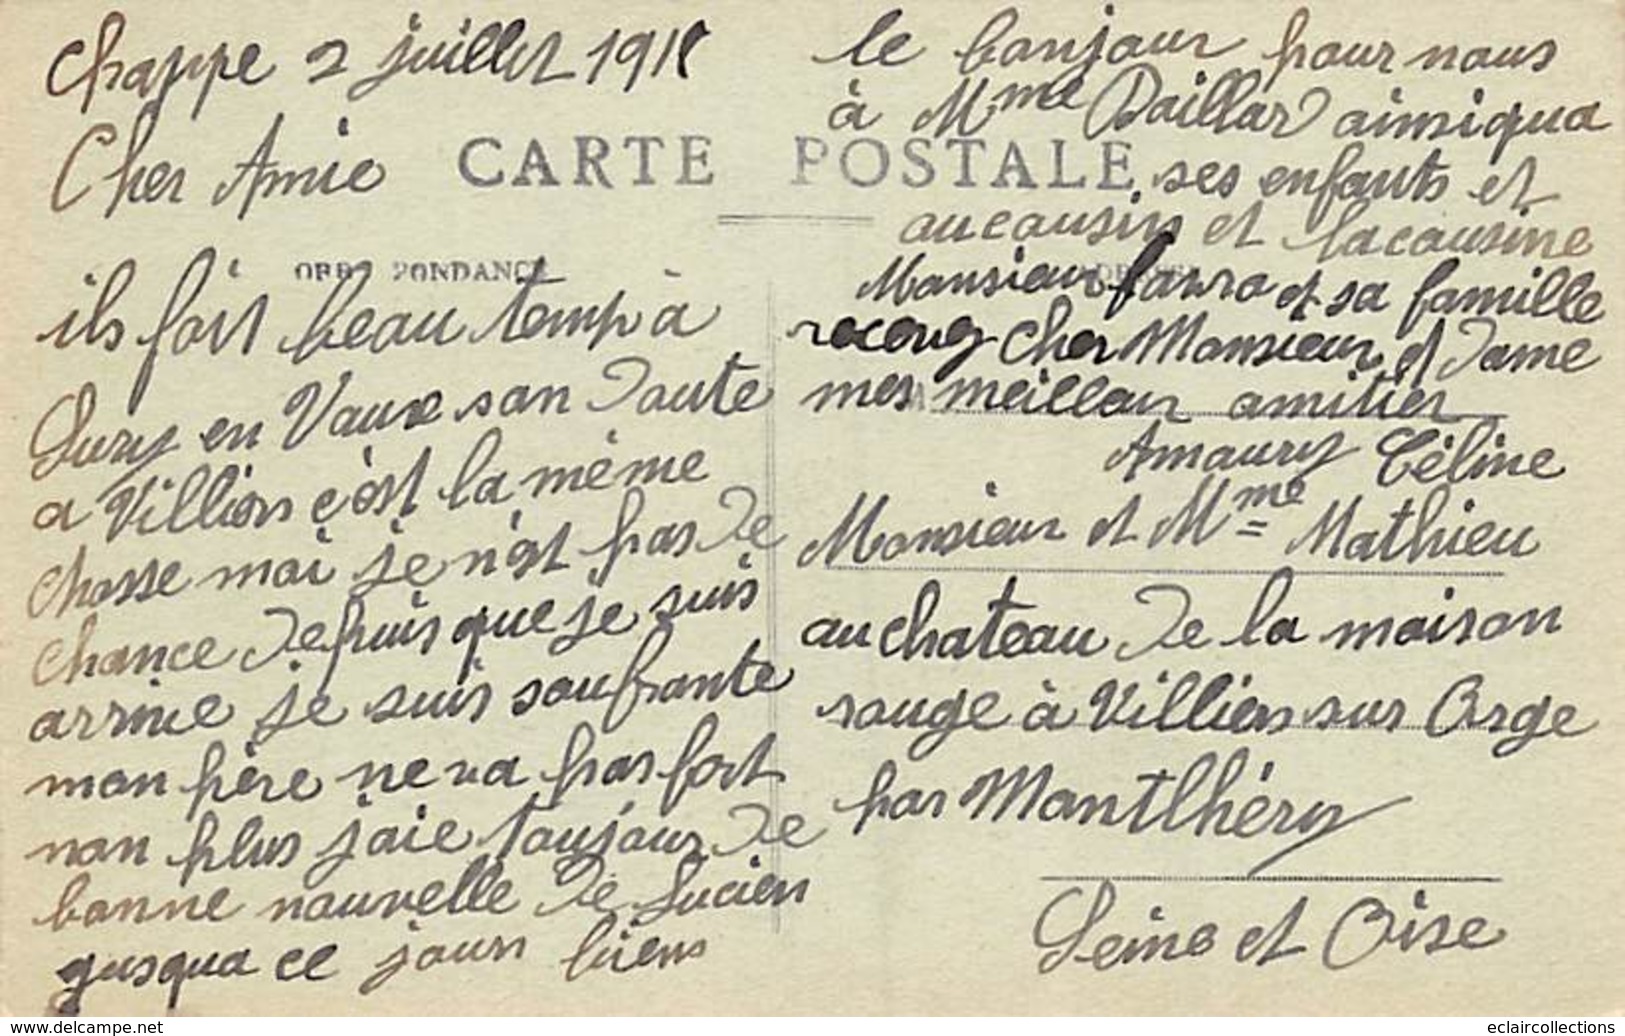 chappe 2 juillet 191
Cher Amie
CARTE POSTALE
ils fait beau temp à
Sury en Vaux san Doute
a Villiers c'est la même
chosse moi je n'est pas De
chance Depuis que je suis
arrive je suis soufrante
mon père ne va pas fort
non plus jaie toujour De
bonne nouvelle De Lucien
gusqua ce jour biens
le bonjour pour nous
à Mme Daillar ainsiqua
ses enfants et
aucousin et lacousine
Monsieur favro et sa famille
recevez cher Monsieur et Dame
mes meilleur amitier
Amaury Céline
Monsieur et Mme Mathieu
au chateau De la maison
rouge à Villiers sur Orge
par Montlhéry
Seine et Oise
www.delcampe.net
eclaircollections